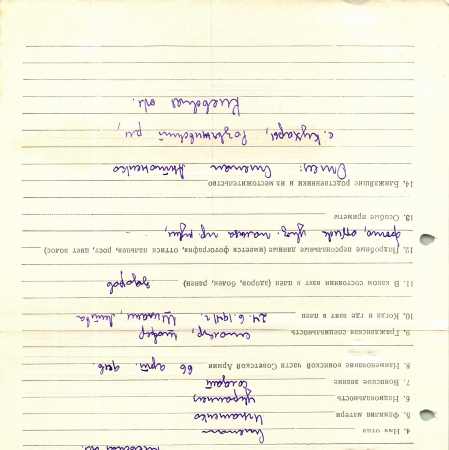 Киевской обл.
4. Имя отца Степан
5. Фамилия матери Игнатенко
6. Национальность украинец
7. Воинское звание солдат
8. Наименование воинской части Советской Армии 66 арт. див
9. Гражданская специальность столяр, шофер
10. Когда и где взят в плен 24. 6. 1941 г. Шиляны, Литва
11. В каком состоянии взят в плен (здоров, болен, ранен) здоров
12. Подробные персональные данные (имеется фотография, оттиск пальцев, рост, цвет волос)
фото, оттиск указ. пальца пр. руки,
13. Особые приметы
14. Ближайшие родственники и их местожительство
Отец: Степан Антоненко
с. Кухары, Розважевский р-н,
Киевская обл.